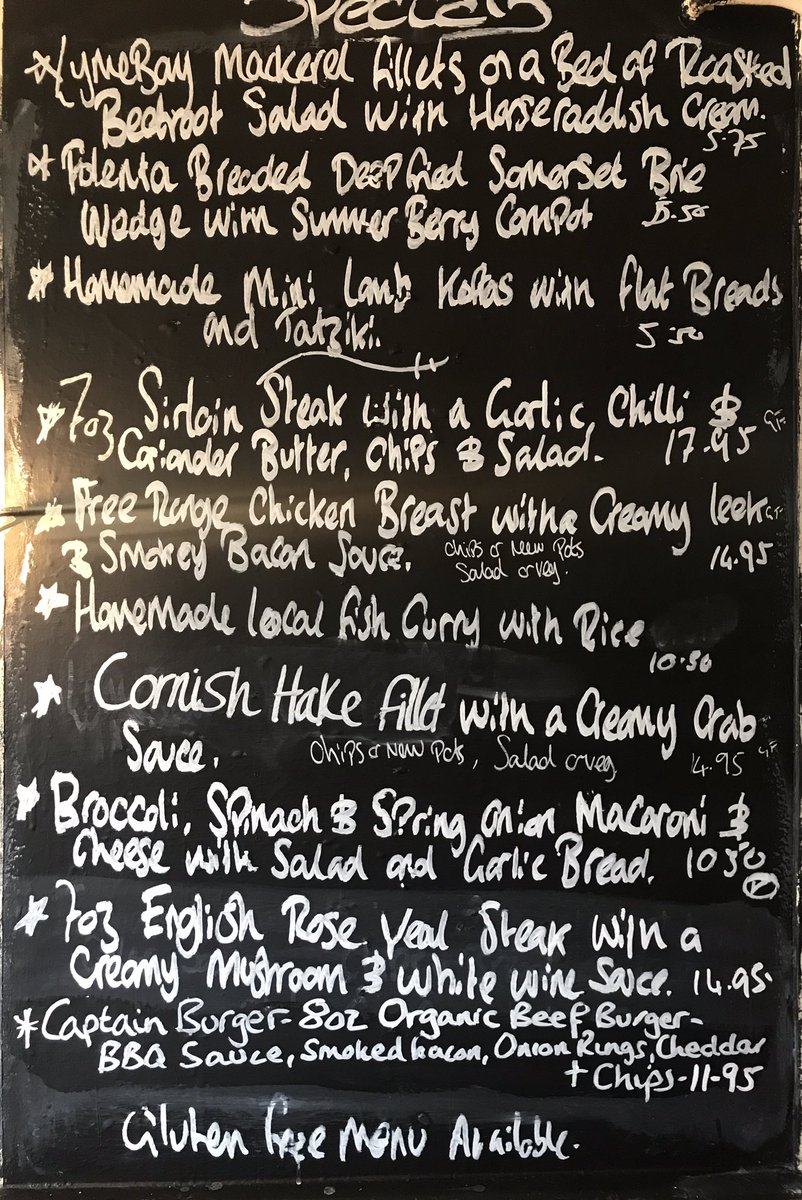 Specials
* LymeBay Mackerel fillets on a Bed of Roasted
Beetroot Salad with Horseraddish Cream.
5.75
* Polenta Breaded Deep fried Somerset Brie
Wedge with Summer Berry Compot 5.50
* Homemade Mini Lamb Koftas with flat Breads
and Tatziki. 5.50
* 7oz Sirloin Steak with a Garlic, Chilli & GF
Coriander Butter, Chips & Salad. 17.95
* Free Range Chicken Breast with a Creamy leek GF
& Smokey Bacon Sauce. Chips or New Pots 14.95
Salad or veg.
* Homemade local fish Curry with Rice
10.50
* Cornish Hake fillet with a Creamy Crab
Sauce. Chips or New Pots, Salad or veg 14.95 GF
* Broccoli, Spinach & Spring onion Macaroni &
Cheese with Salad and Garlic Bread. 10 50
V
* 7oz English Rose Veal Steak with a
Creamy Mushroom & white wine Sauce. 14.95
* Captain Burger - 8oz Organic Beef Burger -
BBQ Sauce, Smoked bacon, Onion Rings, Cheddar
+ Chips - 11-95
Gluten free Menu Available.